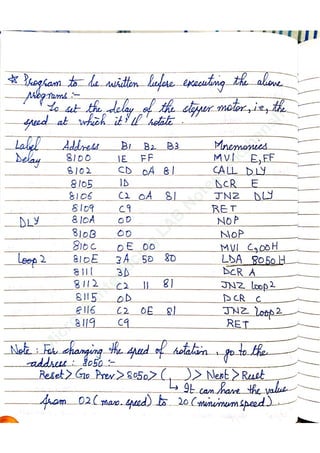 * Program to be written before executing the above
programs :-
To set the delay of the stepper motor, i,e, the
speed at which it'll rotate.
Label Address B1 B2 B3 Mnemonics
Delay 8100 1E FF MVI E,FF
8102 CD 0A 81 CALL DLY
8105 1D DCR E
8106 C2 0A 81 JNZ DLY
8109 C9 RET
DLY 810A 00 NOP
810B 00 NOP
810C 0E 00 MVI C,00H
Loop2 810E 3A 50 80 LDA 8050H
8111 3D DCR A
8112 C2 11 81 JNZ loop2
8115 0D DCR C
8116 C2 0E 81 JNZ loop2
8119 C9 RET
Note : For changing the speed of rotation, go to the
address : 8050 :-
Reset > Go Prev > 8050 > ( ) > Next > Reset
↳ It can have the value
from 02 (max. speed) to 20 (minimum speed).